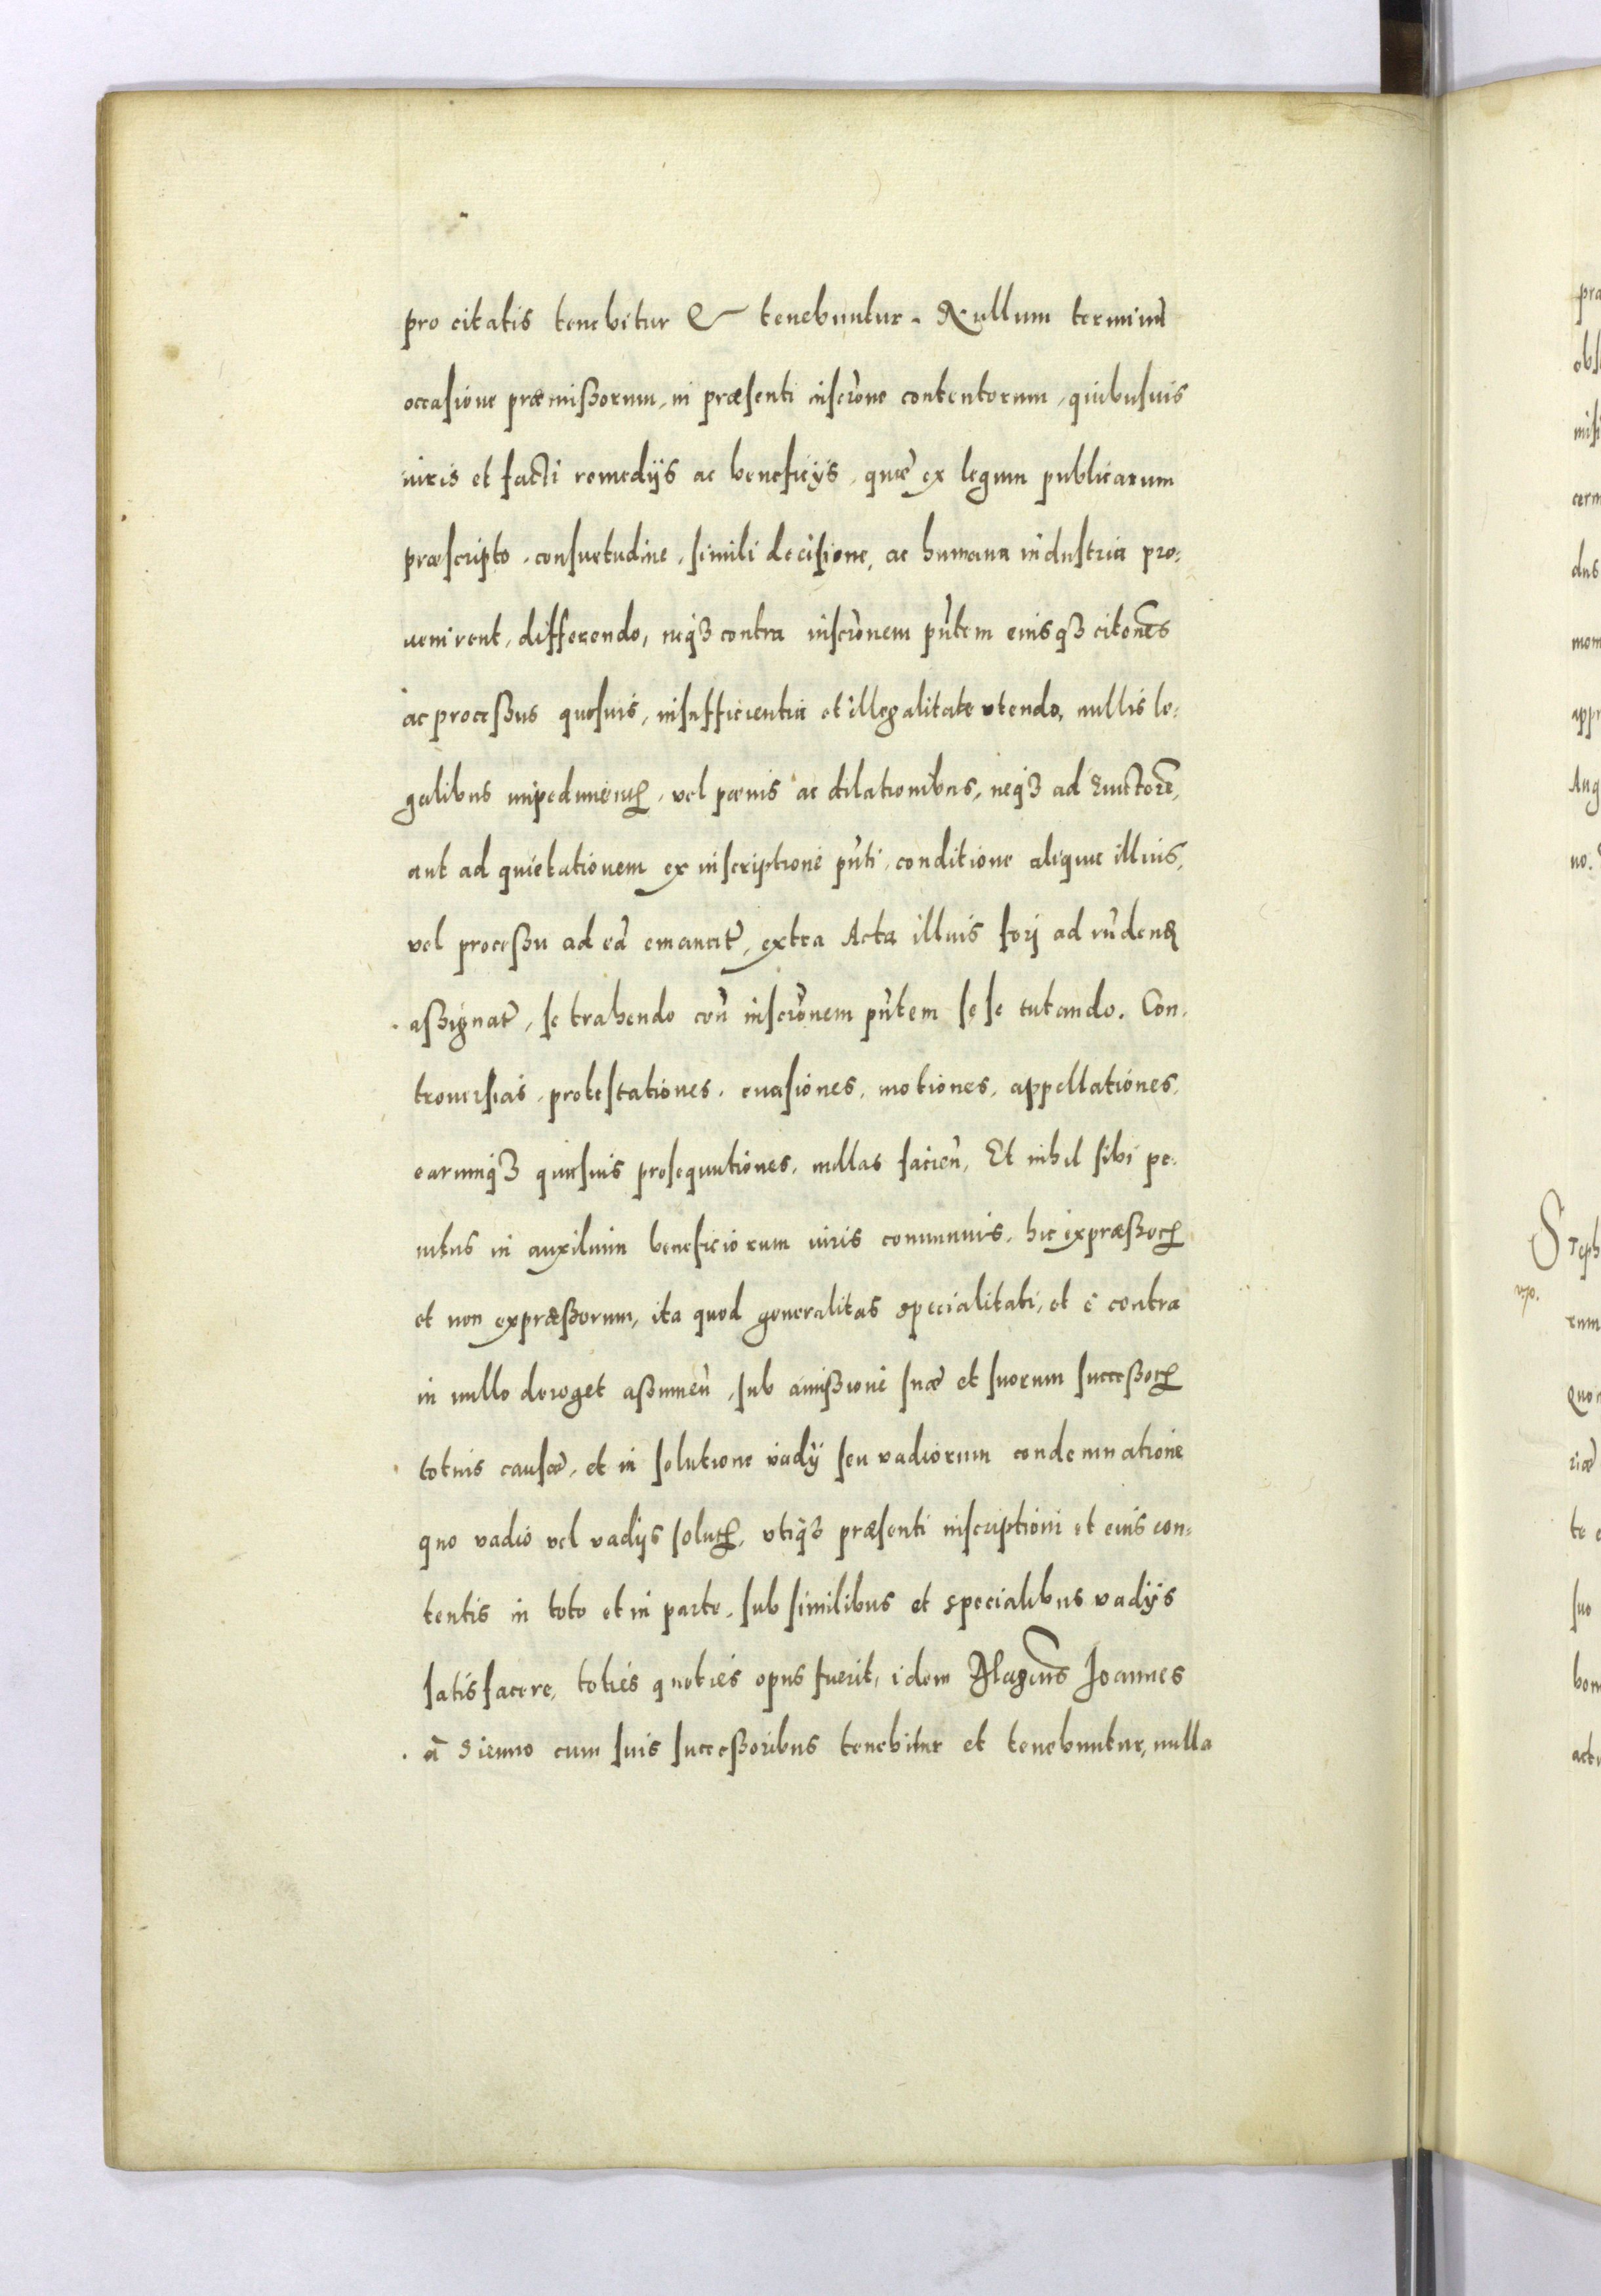 pro citatis tenebitur & tenebuntur. Nullum terminũ
occasione præmissorum, in præsenti inscr̃one contentorum, quibusuis
iuris et facti remedijs ac beneficijs, quæ ex legum publicarum
præscripto, consuetudine, simili decisione, ac humana industria pro=
uenirent, differendo, neq3 contra inscr̃onem pñtem eiusq3 citõnes
ac processus quosuis, insufficientia et illegalitate vtendo, nullis le=
galibus impedimentꝝ, vel pœnis ac dilationibus, neq3 ad Euictorẽ,
aut ad quietationem ex inscriptione pñti, conditione aliqua illius,
vel processu ad eã emanatꝭ, extra Acta illius forj ad rñdenꝝ
assignatꝭ, se trahendo coñ inscr̃onem pñtem sese tutando. Con=
trouersias, protestationes, euasiones, motiones, appellationes,
earumq3 quasuis prosequutiones, nullas facieñ, Et nihil sibi pe=
nitus in auxilium beneficiorum iuris communis, hic expræssorꝝ
et non expræssorum, ita quod generalitas specialitati, et è contra
in nullo deroget assumeñ, sub amissione suæ et suorum successorꝝ
totius causæ, et in solutione vadij seu vadiorum condemnatione
quo vadio vel vadijs solutꝝ, vtiq3 præsenti inscriptioni et eius con=
tentis in toto et in parte, sub similibus et specialibus vadijs
satisfacere, toties quoties opus fuerit, idem Magcus Joannes
à Sienno cum suis successoribus tenebitur et tenebuntur, nulla